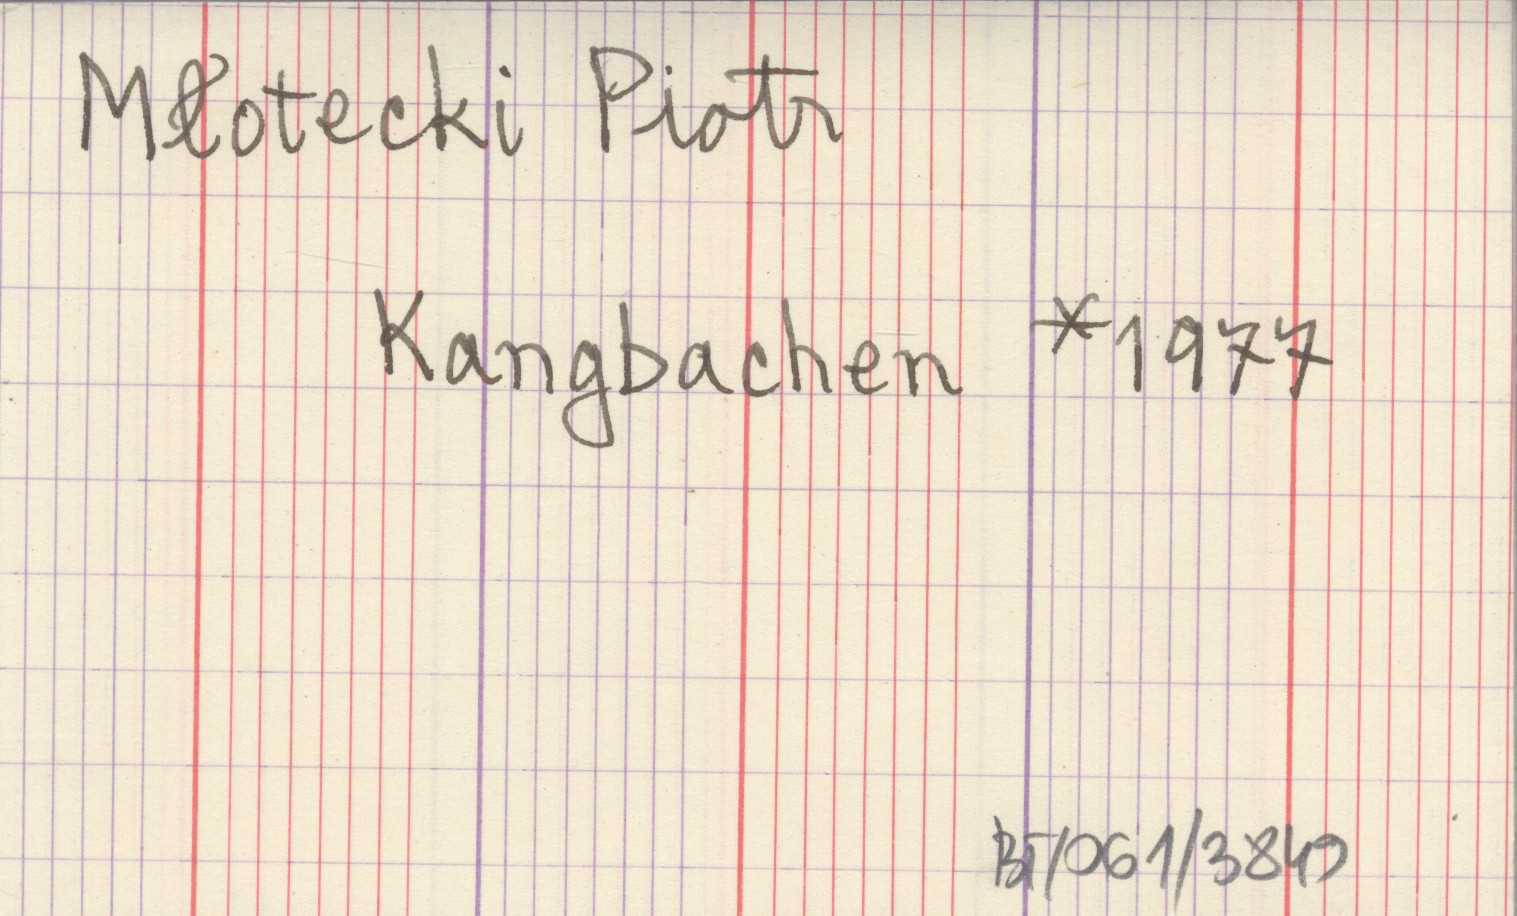 Młotecki Piotr
Kangbachen *1977
BT/061/3849